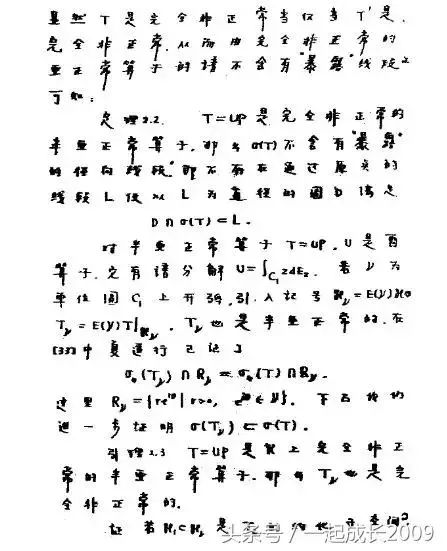 显然 T 是完全非正常当仅当 T' 是
完全非正常.从而由完全非正常的
亚正常算子的谱不会有"暴露"线段立
可知:
定理2.2. T=UP是完全非正常的
半亚正常算子,那么σ(T)不会有"暴露"
的径向线段,即不存在通过原点的
线段 L 使以 L 为直径的圆D满足
D∩σ(T)⊂L.
对半亚正常算子 T=UP, U 是酉
算子,定有谱分解 U=∫_{C₁} z dE_z. 若 γ 为
单位圆 C₁ 上开弧,引入记号 H_γ=E(γ)H
T_γ=E(γ)T|_{H_γ}. T_γ也是半亚正常的.在
[33]中夏道行已证了
σ_a(T_γ)∩R_γ=σ_a(T)∩R_γ.
这里 R_γ={re^{iθ}|r>0, e^{iθ}∈γ}. 下右我们
进一步证明 σ(T_γ)⊂σ(T).
引理2.3 T=UP是H上完全非正
常的半亚正常算子.那么 T_γ 也是完
全非正常的.
证 若 H₁⊂H_γ 是 的约化子空间
头条号 / 一起成长2009